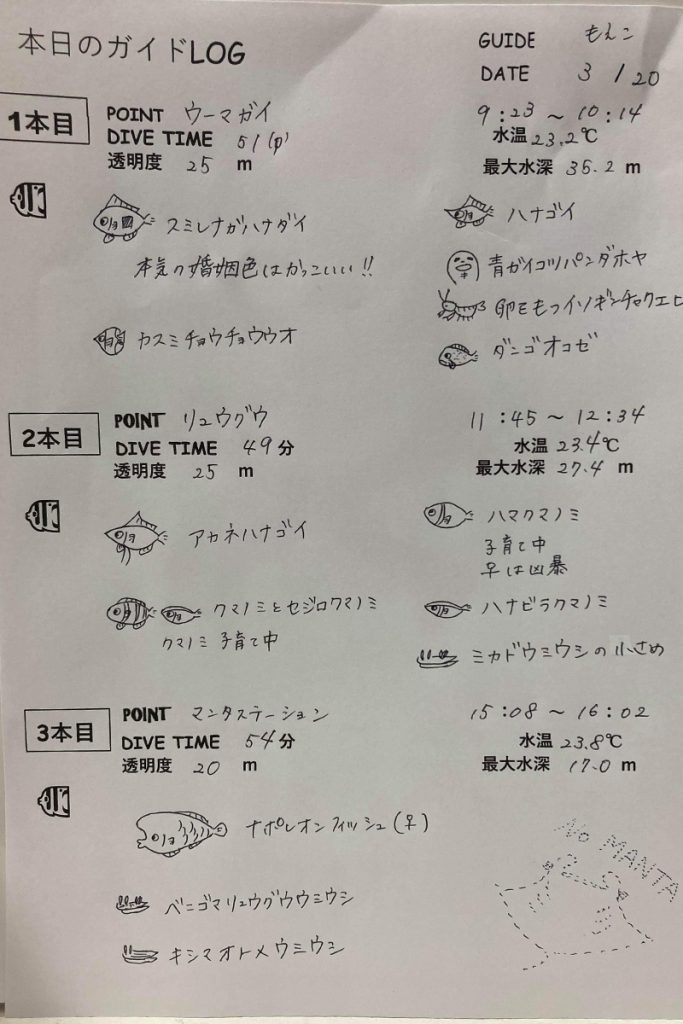 本日のガイドLOG
GUIDE もえこ
DATE 3 / 20
1本目
POINT ウーマガイ
9:23 ～ 10:14
DIVE TIME 51分
水温 23.2℃
透明度 25 m
最大水深 35.2 m
スミレナガハナダイ
本気の婚姻色はかっこいい!!
カスミチョウチョウウオ
ハナゴイ
青ガイコツパンダホヤ
卵をもつイソギンチャクエビ
ダンゴオコゼ
2本目
POINT リュウグウ
11:45 ～ 12:34
DIVE TIME 49分
水温 23.4℃
透明度 25 m
最大水深 27.4 m
アカネハナゴイ
クマノミとセジロクマノミ
クマノミ 子育て中
ハマクマノミ
子育て中
♀は凶暴
ハナビラクマノミ
ミカドウミウシの小さめ
3本目
POINT マンタステーション
15:08 ～ 16:02
DIVE TIME 54分
水温 23.8℃
透明度 20 m
最大水深 17.0 m
ナポレオンフィッシュ(♀)
ベニゴマリュウグウウミウシ
キシマオトメウミウシ
No MANTA